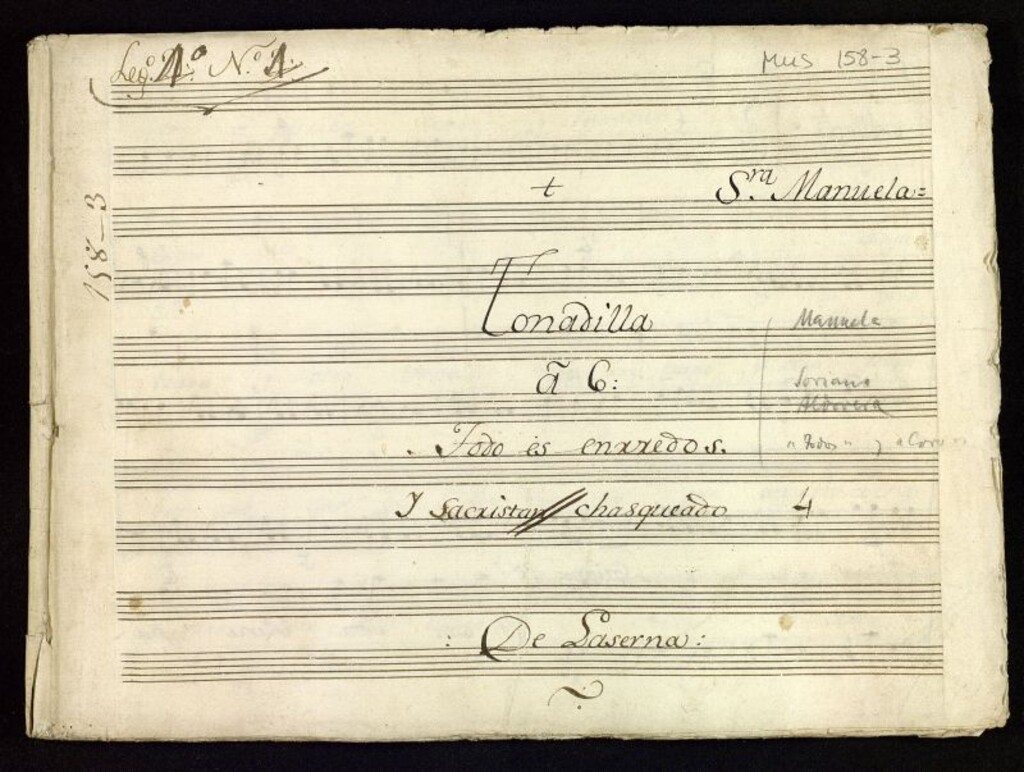 Leg.º 1.º N.º 1.
Mus 158-3
158-3
t
S.ra Manuela=
Tonadilla
Manuela
â 6:
Soriano
Aldovera
. Todo es enrredos.
"Todos" y "Coro"
Y Sacristan chasqueado
4
: De Laserna: